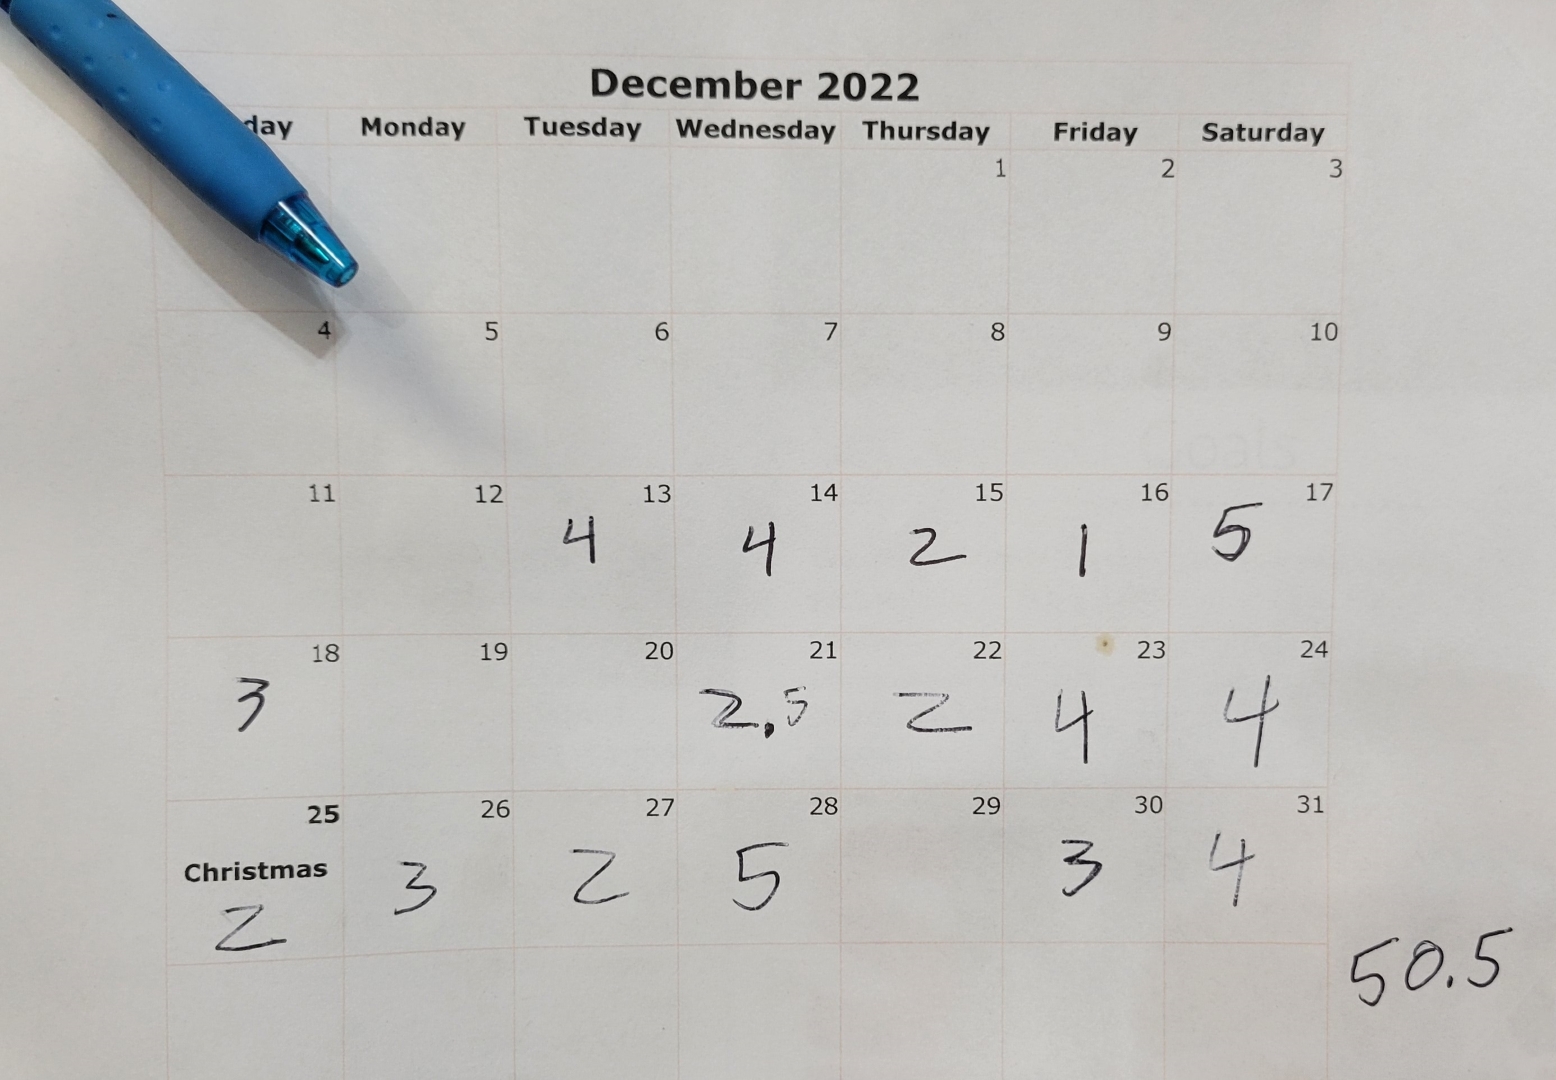 December 2022
day Monday Tuesday Wednesday Thursday Friday Saturday
1 2 3
4 5 6 7 8 9 10
11 12 13 14 15 16 17
4 4 2 1 5
18 19 20 21 22 23 24
3 2.5 2 4 4
25 26 27 28 29 30 31
Christmas
2 3 2 5 3 4
50.5